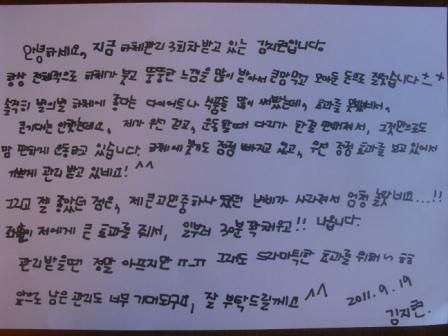 안녕하세요, 지금 하체관리 3회차 받고 있는 김지현입니다.
항상 전체적으로 하체가 붓고 뚱뚱한 느낌을 많이 받아서 큰맘먹고 모아둔 돈으로 질렀습니다 ㅗㅗ
솔직히 별의별 하체에 좋다는 다이어트나 용품도 많이 써봤는데, 효과를 못봤어서,
큰기대는 안했는데요, 제가 우선 걷고, 운동할때 다리가 한결 편해져서, 그것만으로도
맘 편하게 운동하고 있습니다. 하체에 붓기도 점점 빠지고 있고, 우선 굉장 효과를 보고 있어서
기쁘게 관리 받고 있네요! ^^
그리고 젤 좋았던 점은, 제 큰고민중 하나였던 변비가 사라져서 엄청 놀랐네요...!!
저에게 큰 효과를 줘서, 일부러 30분 꽉채우고!! 나옵니다.
관리받을땐 정말 아프지만 ㅠ_ㅠ 그래도 드라마틱한 효과를 위해서
앞으로 남은 관리도 너무 기대도구요, 잘 부탁드릴게요 ^^
2011. 9. 19
김지현.